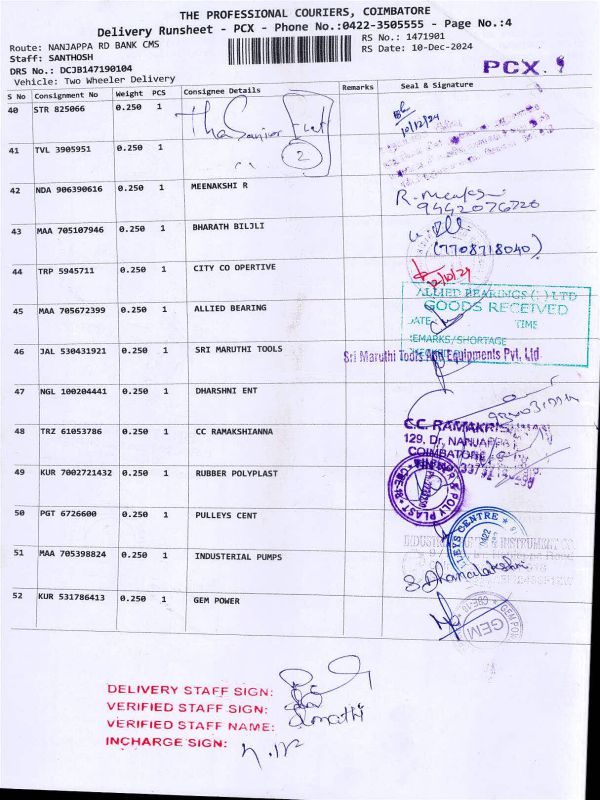 THE PROFESSIONAL COURIERS, COIMBATORE
Delivery Runsheet - PCX - Phone No.:0422-3505555 - Page No.:4
Route: NANJAPPA RD BANK CMS
RS No.: 1471901
Staff: SANTHOSH
RS Date: 10-Dec-2024
DRS No.: DCJB147190104
PCX.
Vehicle: Two Wheeler Delivery
S No Consignment No Weight PCS Consignee Details Remarks Seal & Signature
40 STR 825066 0.250 1
10/12/24
41 TVL 3905951 0.250 1
2
42 NDA 906390616 0.250 1 MEENAKSHI R
9442076720
43 MAA 705107946 0.250 1 BHARATH BILJLI
(7708718040)
44 TRP 5945711 0.250 1 CITY CO OPERTIVE
45 MAA 705672399 0.250 1 ALLIED BEARING
ALLIED BEARINGS LTD
GOODS RECEIVED
TIME
46 JAL 530431921 0.250 1 SRI MARUTHI TOOLS
Sri Maruthi Tools And Equipments Pvt. Ltd
47 NGL 100204441 0.250 1 DHARSHNI ENT
48 TRZ 61053786 0.250 1 CC RAMAKSHIANNA
C.C. RAMAKRIS
129, Dr. NANJAPPA
COIMBATORE
49 KUR 7002721432 0.250 1 RUBBER POLYPLAST
50 PGT 6726600 0.250 1 PULLEYS CENT
LLEYS CENTRE
0422
51 MAA 705398824 0.250 1 INDUSTERIAL PUMPS
S. Dhanalakshmi
52 KUR 531786413 0.250 1 GEM POWER
GEM
DELIVERY STAFF SIGN:
VERIFIED STAFF SIGN:
VERIFIED STAFF NAME:
INCHARGE SIGN: